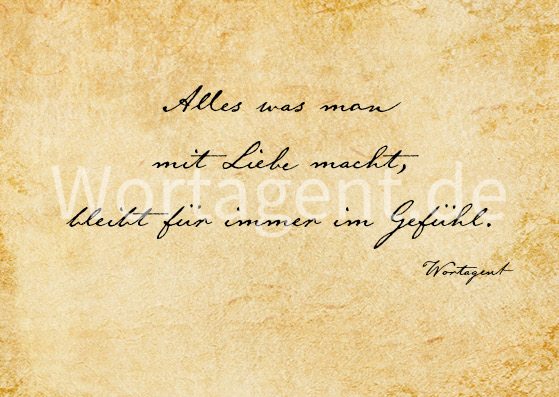 Alles was man
mit Liebe macht,
bleibt für immer im Gefühl.
Wortagent
Wortagent.de